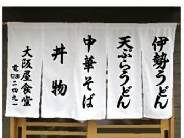 伊勢うどん
天ぷらうどん
中華そば
丼物
大阪屋食堂